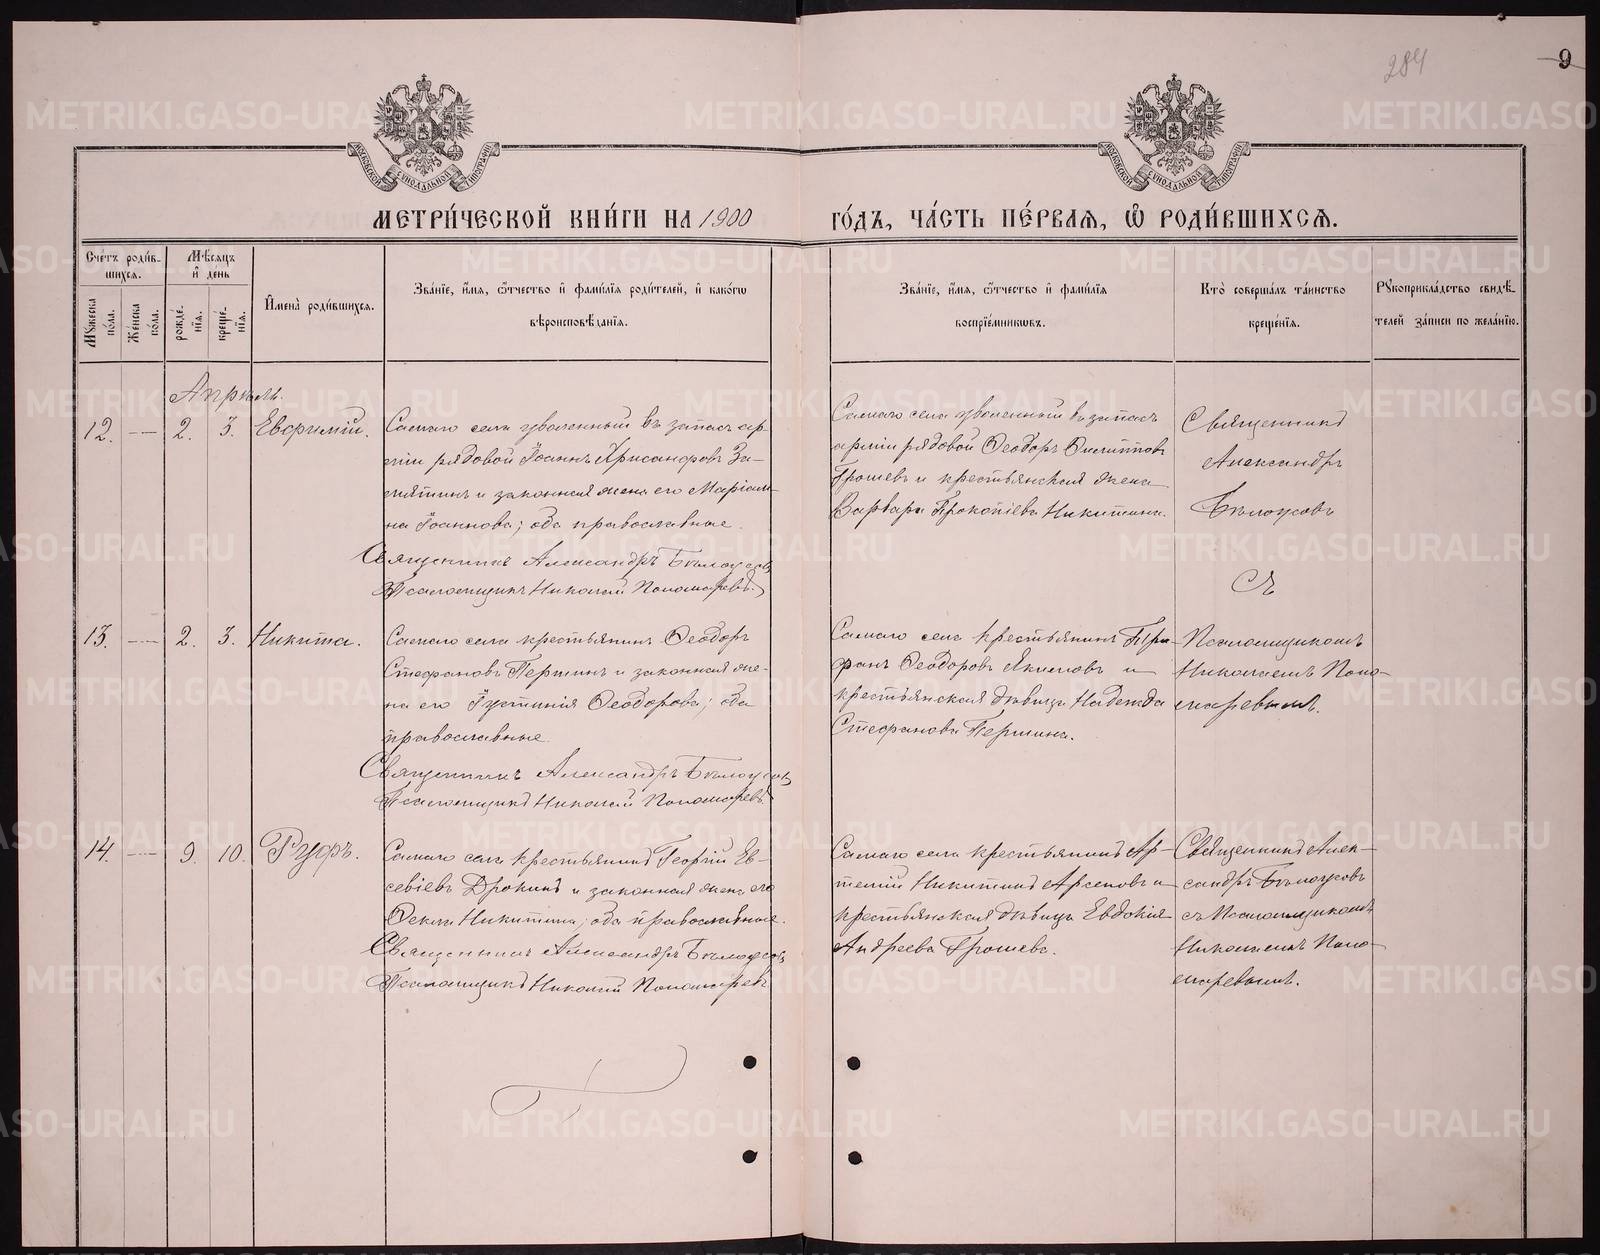 284
9
МЕТРИ́ЧЕСКОЙ КНИ́ГИ НА 1900
ГО́ДЪ, ЧА́СТЬ ПЕ́РВАѦ, Ѽ РОДИ́ВШИХСѦ.
Сче́тъ роди́в-
шихся.
Мѣ́сяцъ
и҆ де́нь
Му́жеска по́ла.
Же́нска по́ла.
рожде́нїя.
креще́нїя.
И҆мена̀ роди́вшихся.
Зва́нїе, и҆́мя, ѻ҆́тчество и҆ фами́лїя роди́телей, и҆ како́гѡ
вѣроисповѣ́данїя.
Зва́нїе, и҆́мя, ѻ҆́тчество и҆ фами́лїя
воспрїе́мникѡвъ.
Кто̀ соверша́лъ та́инство
креще́нїя.
Рꙋкоприкла́дство свидѣ́-
телей за́писи по жела́нїю.
Апрѣль.
12. — 2. 3. Евѳимій.
Самаго села уволенный въ запасъ ар-
міи рядовой Іоаннъ Хрисанфовъ За-
мятинъ и законная жена его Маріам-
на Іоаннова; оба православные.
Священникъ Александръ Бѣлоусовъ
Псаломщикъ Николай Пономаревъ.
Самаго села уволенный въ запасъ
арміи рядовой Ѳеодоръ Филипповъ
Грошевъ и крестьянская жена
Варвара Прокопіева Никитина.
Священникъ
Александръ
Бѣлоусовъ
съ
13. — 2. 3. Никита.
Самаго села крестьянинъ Ѳеодоръ
Стефановъ Першинъ и законная же-
на его Іустинія Ѳеодорова; оба
православные.
Священникъ Александръ Бѣлоусовъ
Псаломщикъ Николай Пономаревъ.
Самаго села крестьянинъ Три-
фанъ Ѳеодоровъ Якимовъ и
крестьянская дѣвица Надежда
Стефанова Першина.
Псаломщикомъ
Николаемъ Поно-
маревымъ.
14. — 9. 10. Руфъ.
Самаго села крестьянинъ Георгій Ев-
севіевъ Дрокинъ и законная жена его
Ѳекла Никитина; оба православные.
Священникъ Александръ Бѣлоусовъ
Псаломщикъ Николай Пономаревъ
Самаго села крестьянинъ Ар-
темій Никитинъ Арсеновъ и
крестьянская дѣвица Евдокія
Андреева Грошева.
Священникъ Алек-
сандръ Бѣлоусовъ
съ Псаломщикомъ
Николаемъ Поно-
маревымъ.